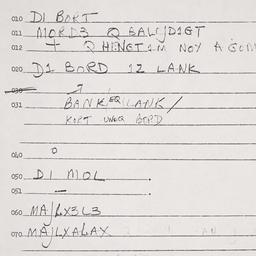 010 DI BORT
011 MORD3 Q BALUJDIGT
012 + Q HINGTIM NOY A
020 DI BORD 12 LANK
030
031 BANK EQ LANK /
KORT UNDR BORD
040
050 DI MOL .
051 — .
060 MAJLX3L3
070 MAJLXALAX